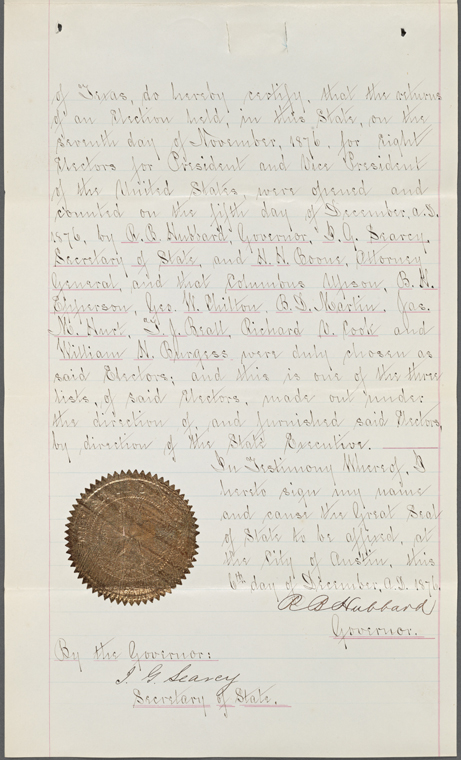 of Texas, do hereby certify, that the returns
of an Election held, in this State, on the
seventh day of November, 1876, for Eight
Electors for President and Vice President
of the United States, were opened and
counted on the fifth day of December, A.D.
1876, by R. B. Hubbard, Governor, I. G. Searcy,
Secretary of State, and H. H. Boone, Attorney
General, and that Columbus Upson, B. H.
Epperson, Geo. W. Chilton, B. D. Martin, Jas.
M. Hurt, T. J. Beall, Richard V. Cook and
William H. Burgess were duly chosen as
said Electors; and this is one of the three
lists, of said Electors, made out under
the direction of, and furnished said Electors,
by direction of the State Executive.
In Testimony Whereof, I
hereto sign my name
and cause the Great Seal
of State to be affixed, at
the City of Austin, this
6th day of December, A.D. 1876.
R B Hubbard
Governor.
By the Governor:
I. G. Searcy
Secretary of State.